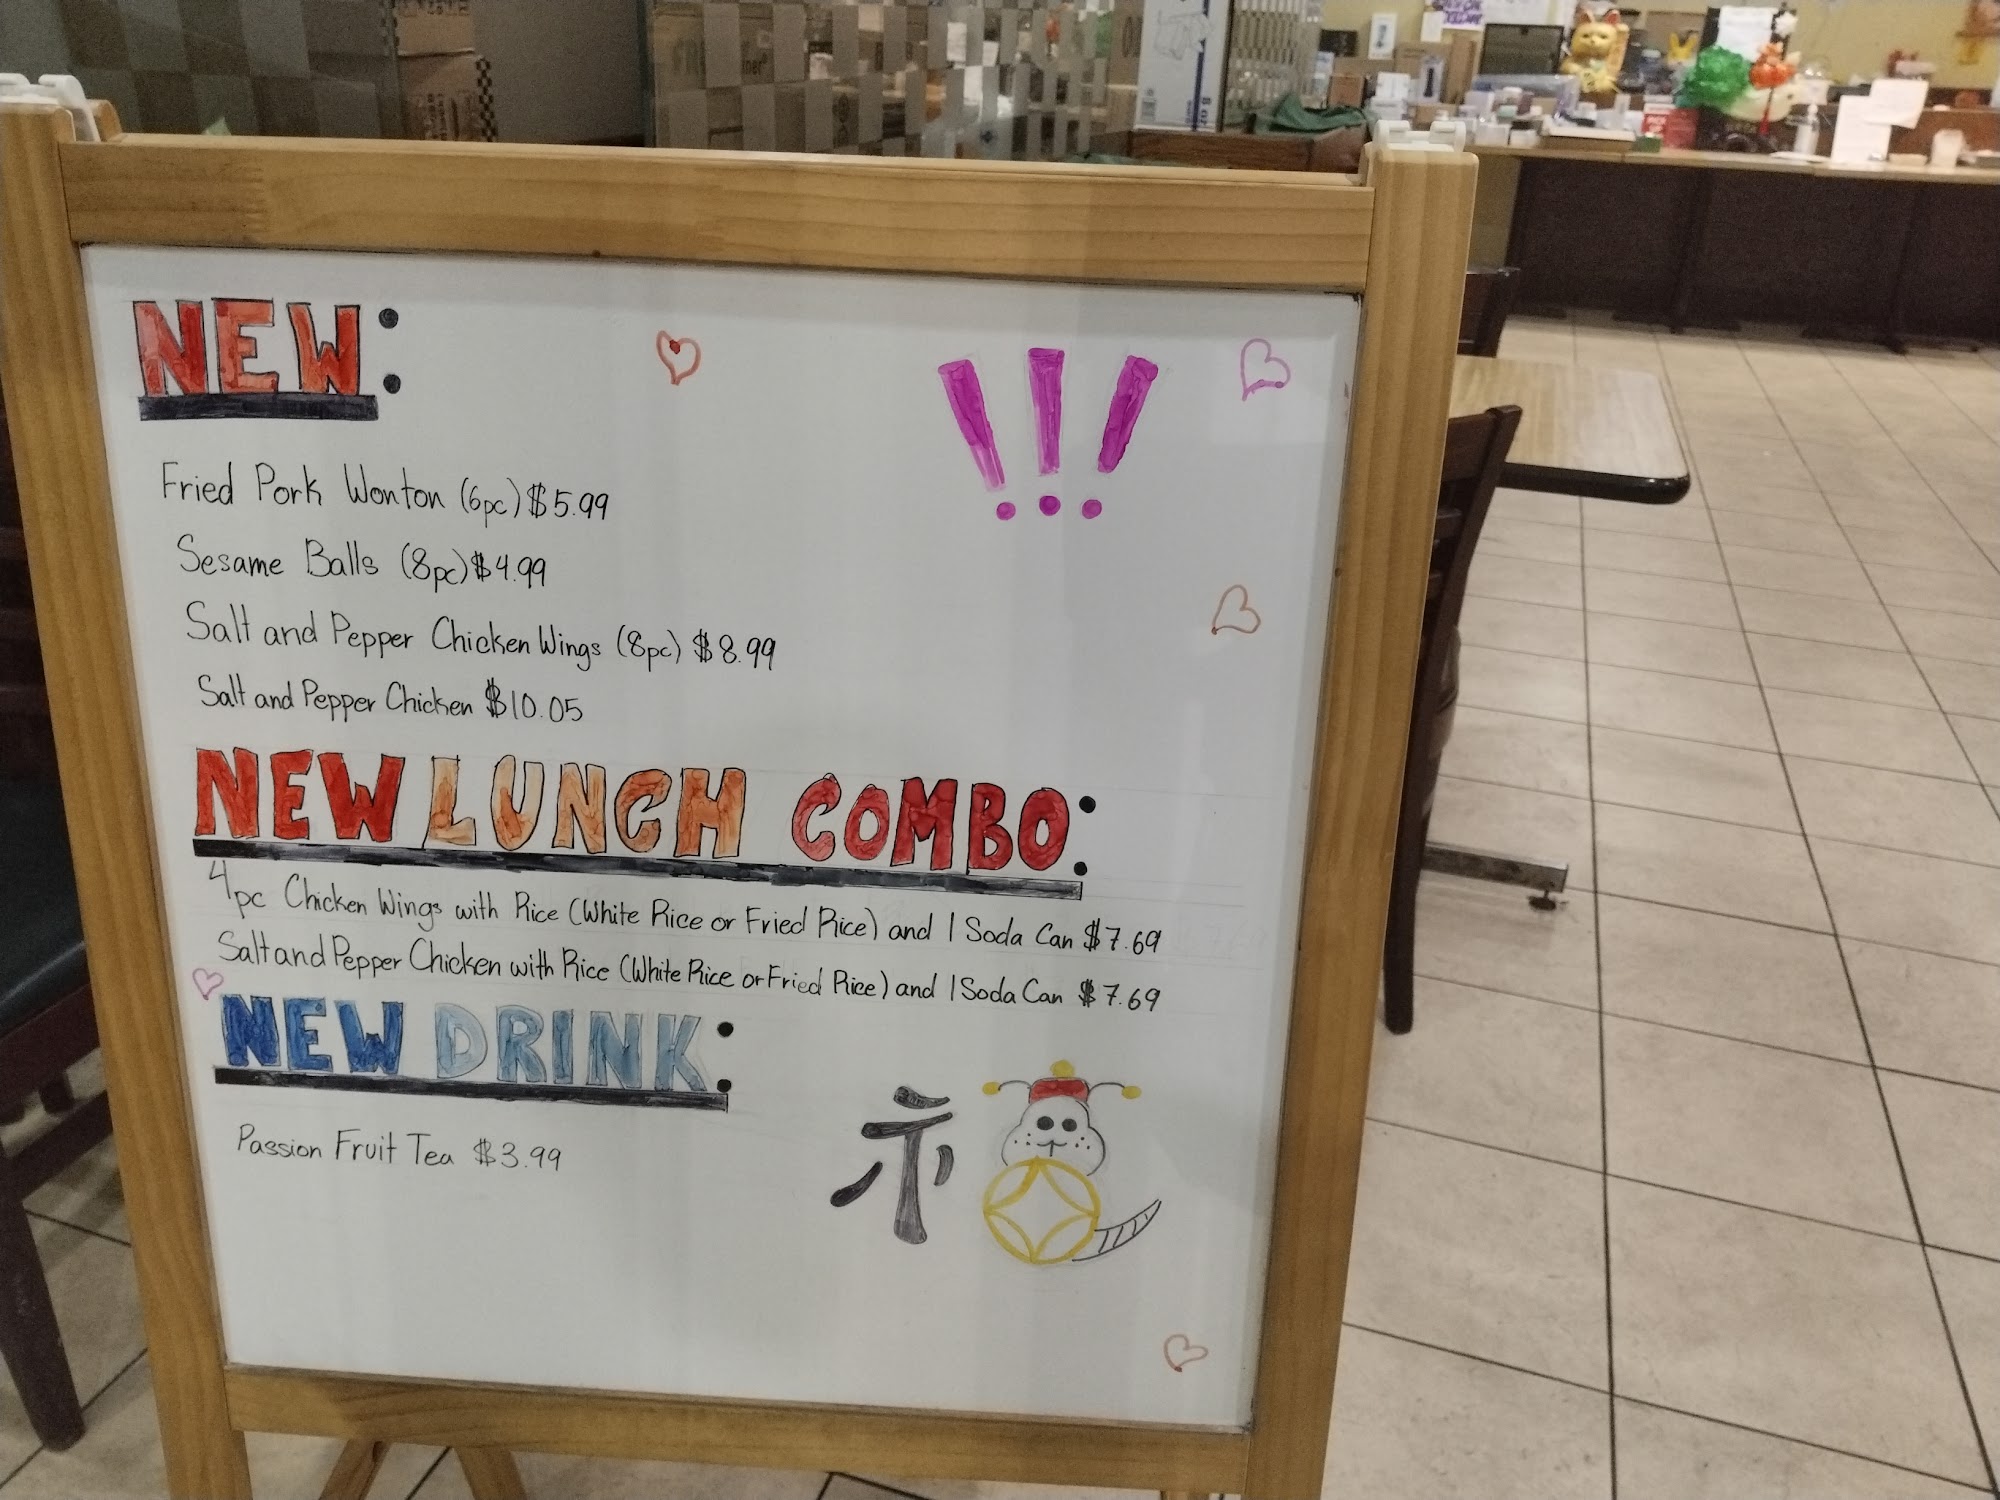 NEW:
!!!
Fried Pork Wonton (6pc) $5.99
Sesame Balls (8pc) $4.99
Salt and Pepper Chicken Wings (8pc) $8.99
Salt and Pepper Chicken $10.05
NEW LUNCH COMBO:
4pc Chicken Wings with Rice (White Rice or Fried Rice) and 1 Soda Can $7.69
Salt and Pepper Chicken with Rice (White Rice or Fried Rice) and 1 Soda Can $7.69
NEW DRINK:
Passion Fruit Tea $3.99